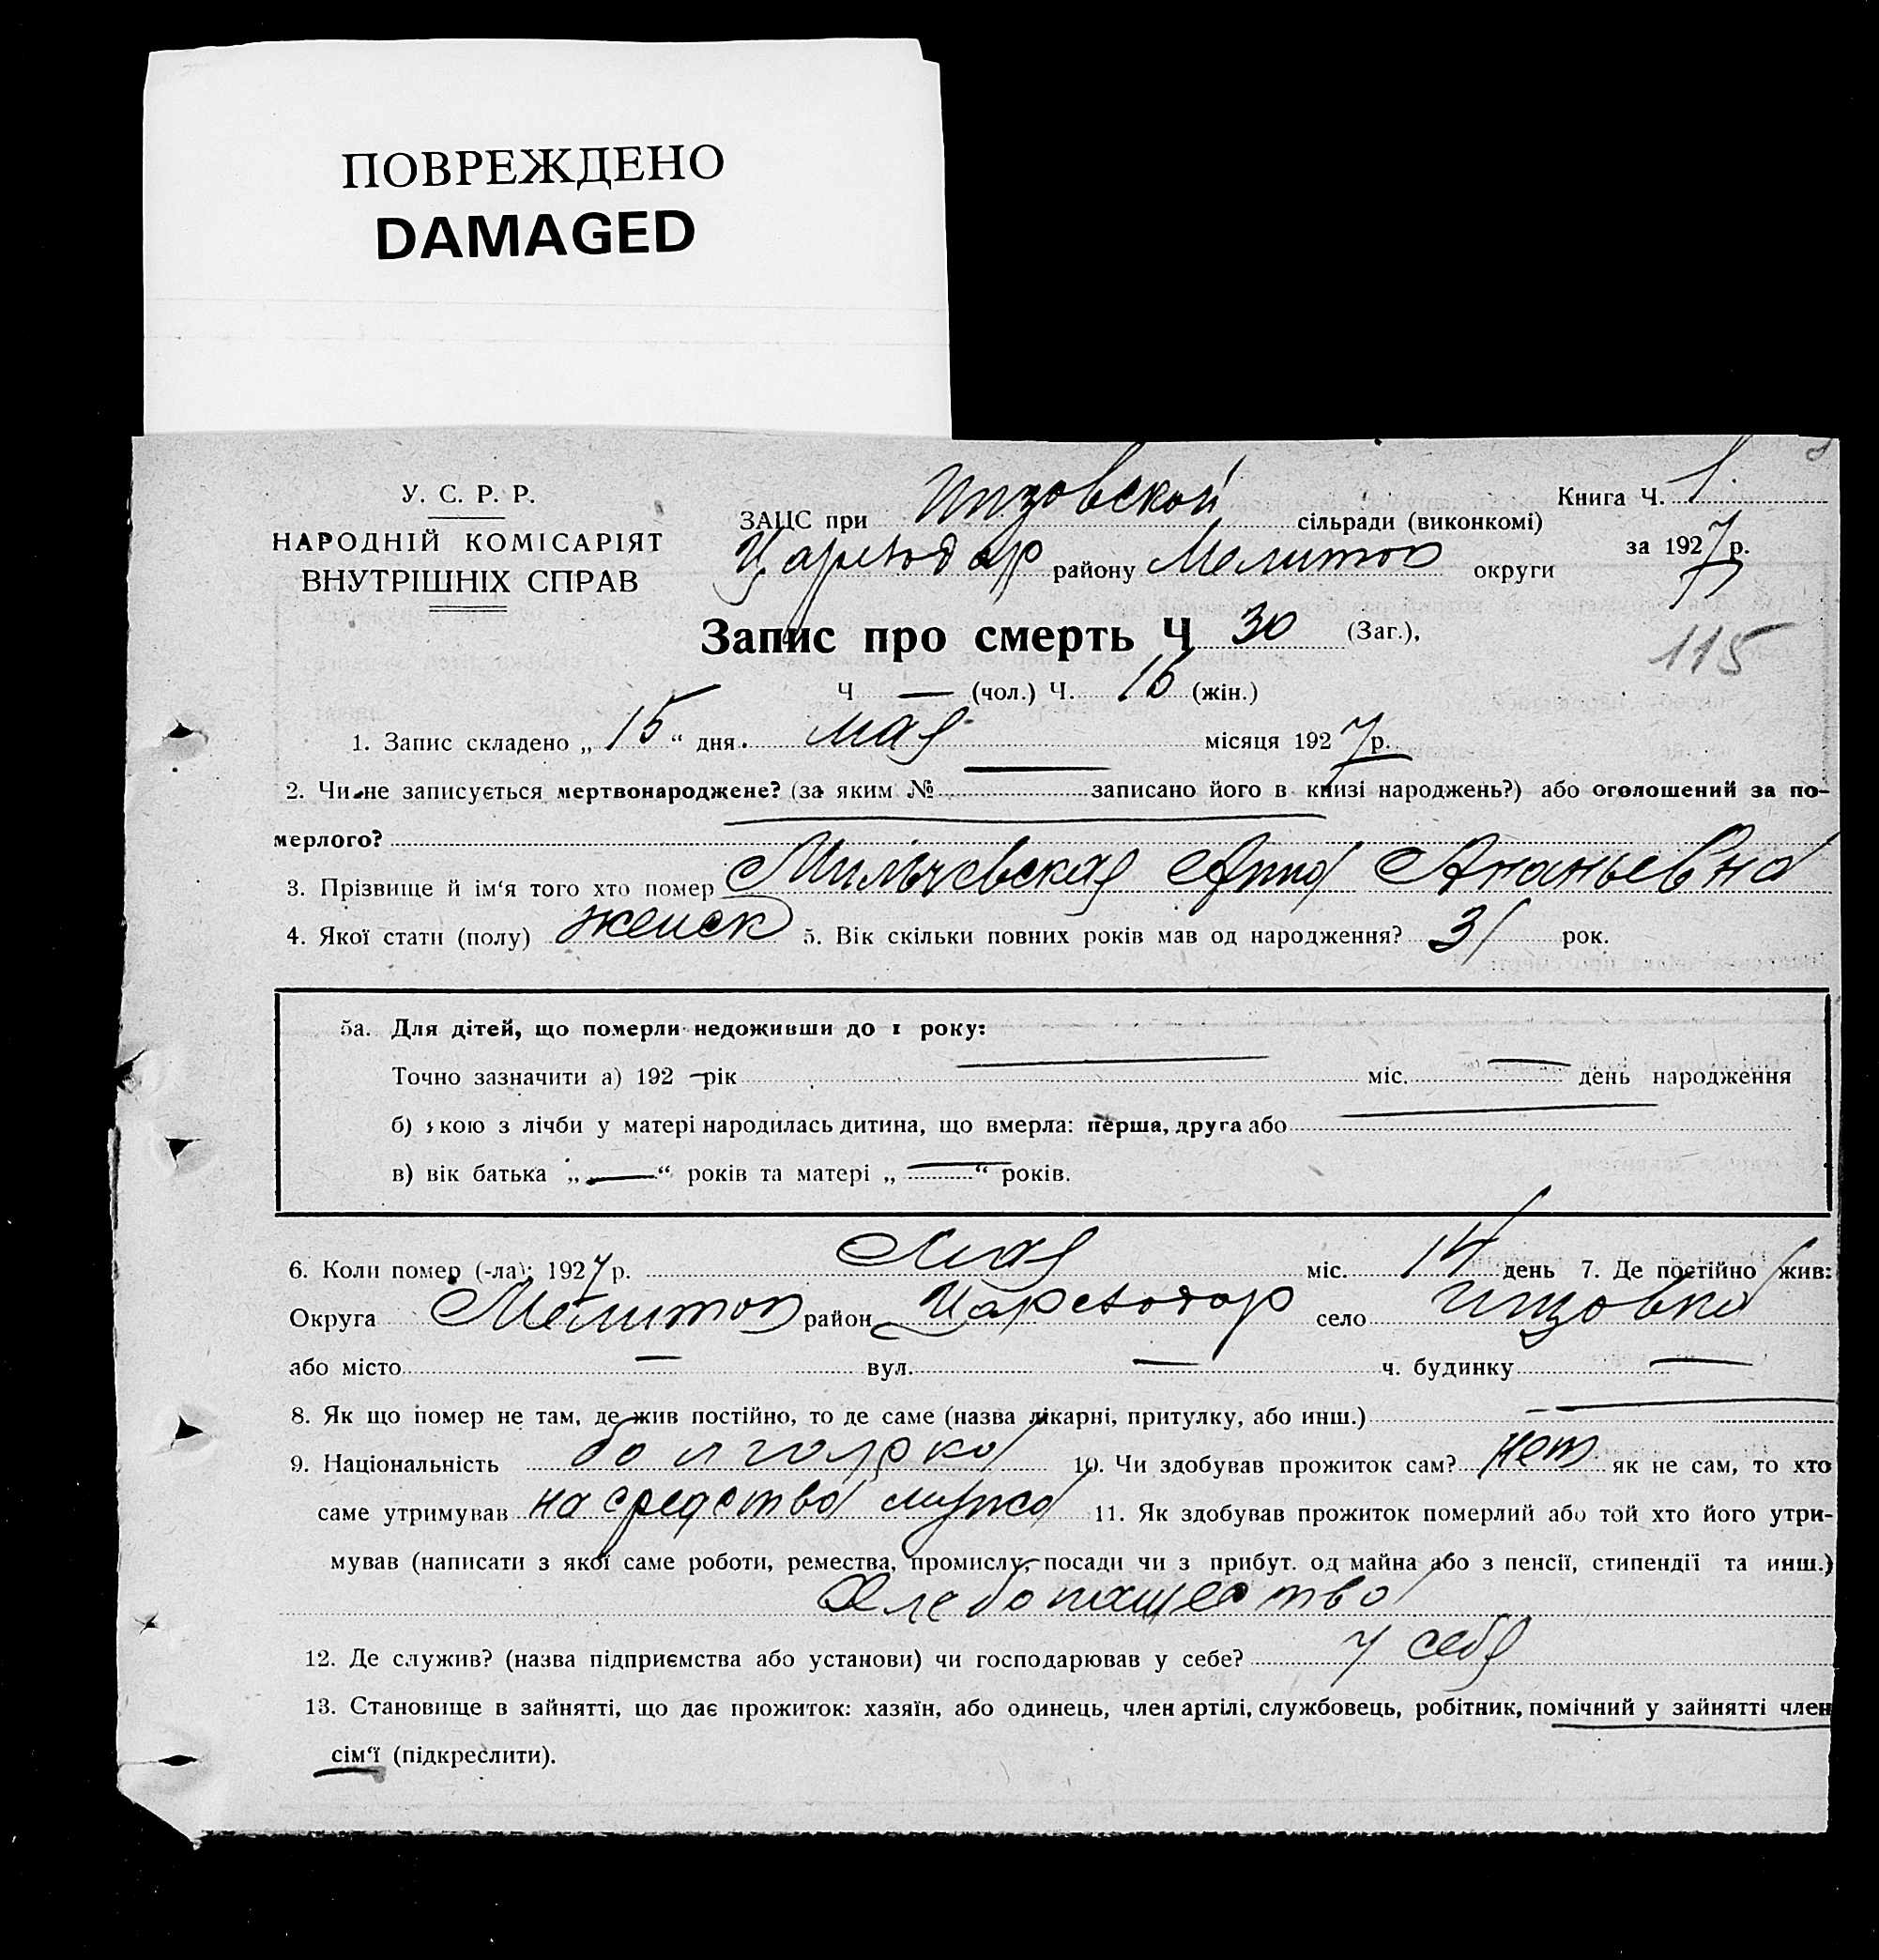 ПОВРЕЖДЕНО
DAMAGED
У. С. Р. Р.
НАРОДНІЙ КОМІСАРІЯТ
ВНУТРІШНІХ СПРАВ
Книга Ч. 1
ЗАЦС при сільради (виконкомі)
за 1927 р.
району Мелитоп округи
115
Запис про смерть Ч 30 (Заг.),
Ч — (чол.) Ч. 16 (жін.)
1. Запис складено „ 15 “ дня мая місяця 1927 р.
2. Чи не записується мертвонароджене? (за яким № — записано його в книзі народжень?) або оголошений за по-
мерлого?
3. Прізвище й ім‘я того хто помер Мильчевская Анна Ананьевна
4. Якої стати (полу) женск 5. Вік скільки повних років мав од народження? 31 рок.
5а. Для дітей, що померли недоживши до 1 року:
Точно зазначити а) 192 — рік — міс. — день народження
б) якою з лічби у матері народилась дитина, що вмерла: перша, друга або —
в) вік батька „ — “ років та матері „ — “ років.
6. Коли помер (-ла): 1927 р. Мая міс. 14 день 7. Де постійно жив:
Округа Мелитоп район Цареводар село
або місто — вул. — ч. будинку —
8. Як що помер не там, де жив постійно, то де саме (назва лікарні, притулку, або инш.) —
9. Національність болгарка 10. Чи здобував прожиток сам? нет як не сам, то хто
саме утримував на средства мужа 11. Як здобував прожиток померлий або той хто його утри-
мував (написати з якої саме роботи, ремества, промислу, посади чи з прибут. од майна або з пенсії, стипендії та инш.)
Хлебопашество
12. Де служив? (назва підприємства або установи) чи господарював у себе? у себя
13. Становище в зайнятті, що дає прожиток: хазяїн, або одинець, член артілі, службовець, робітник, помічний у зайнятті член
сім‘ї (підкреслити).